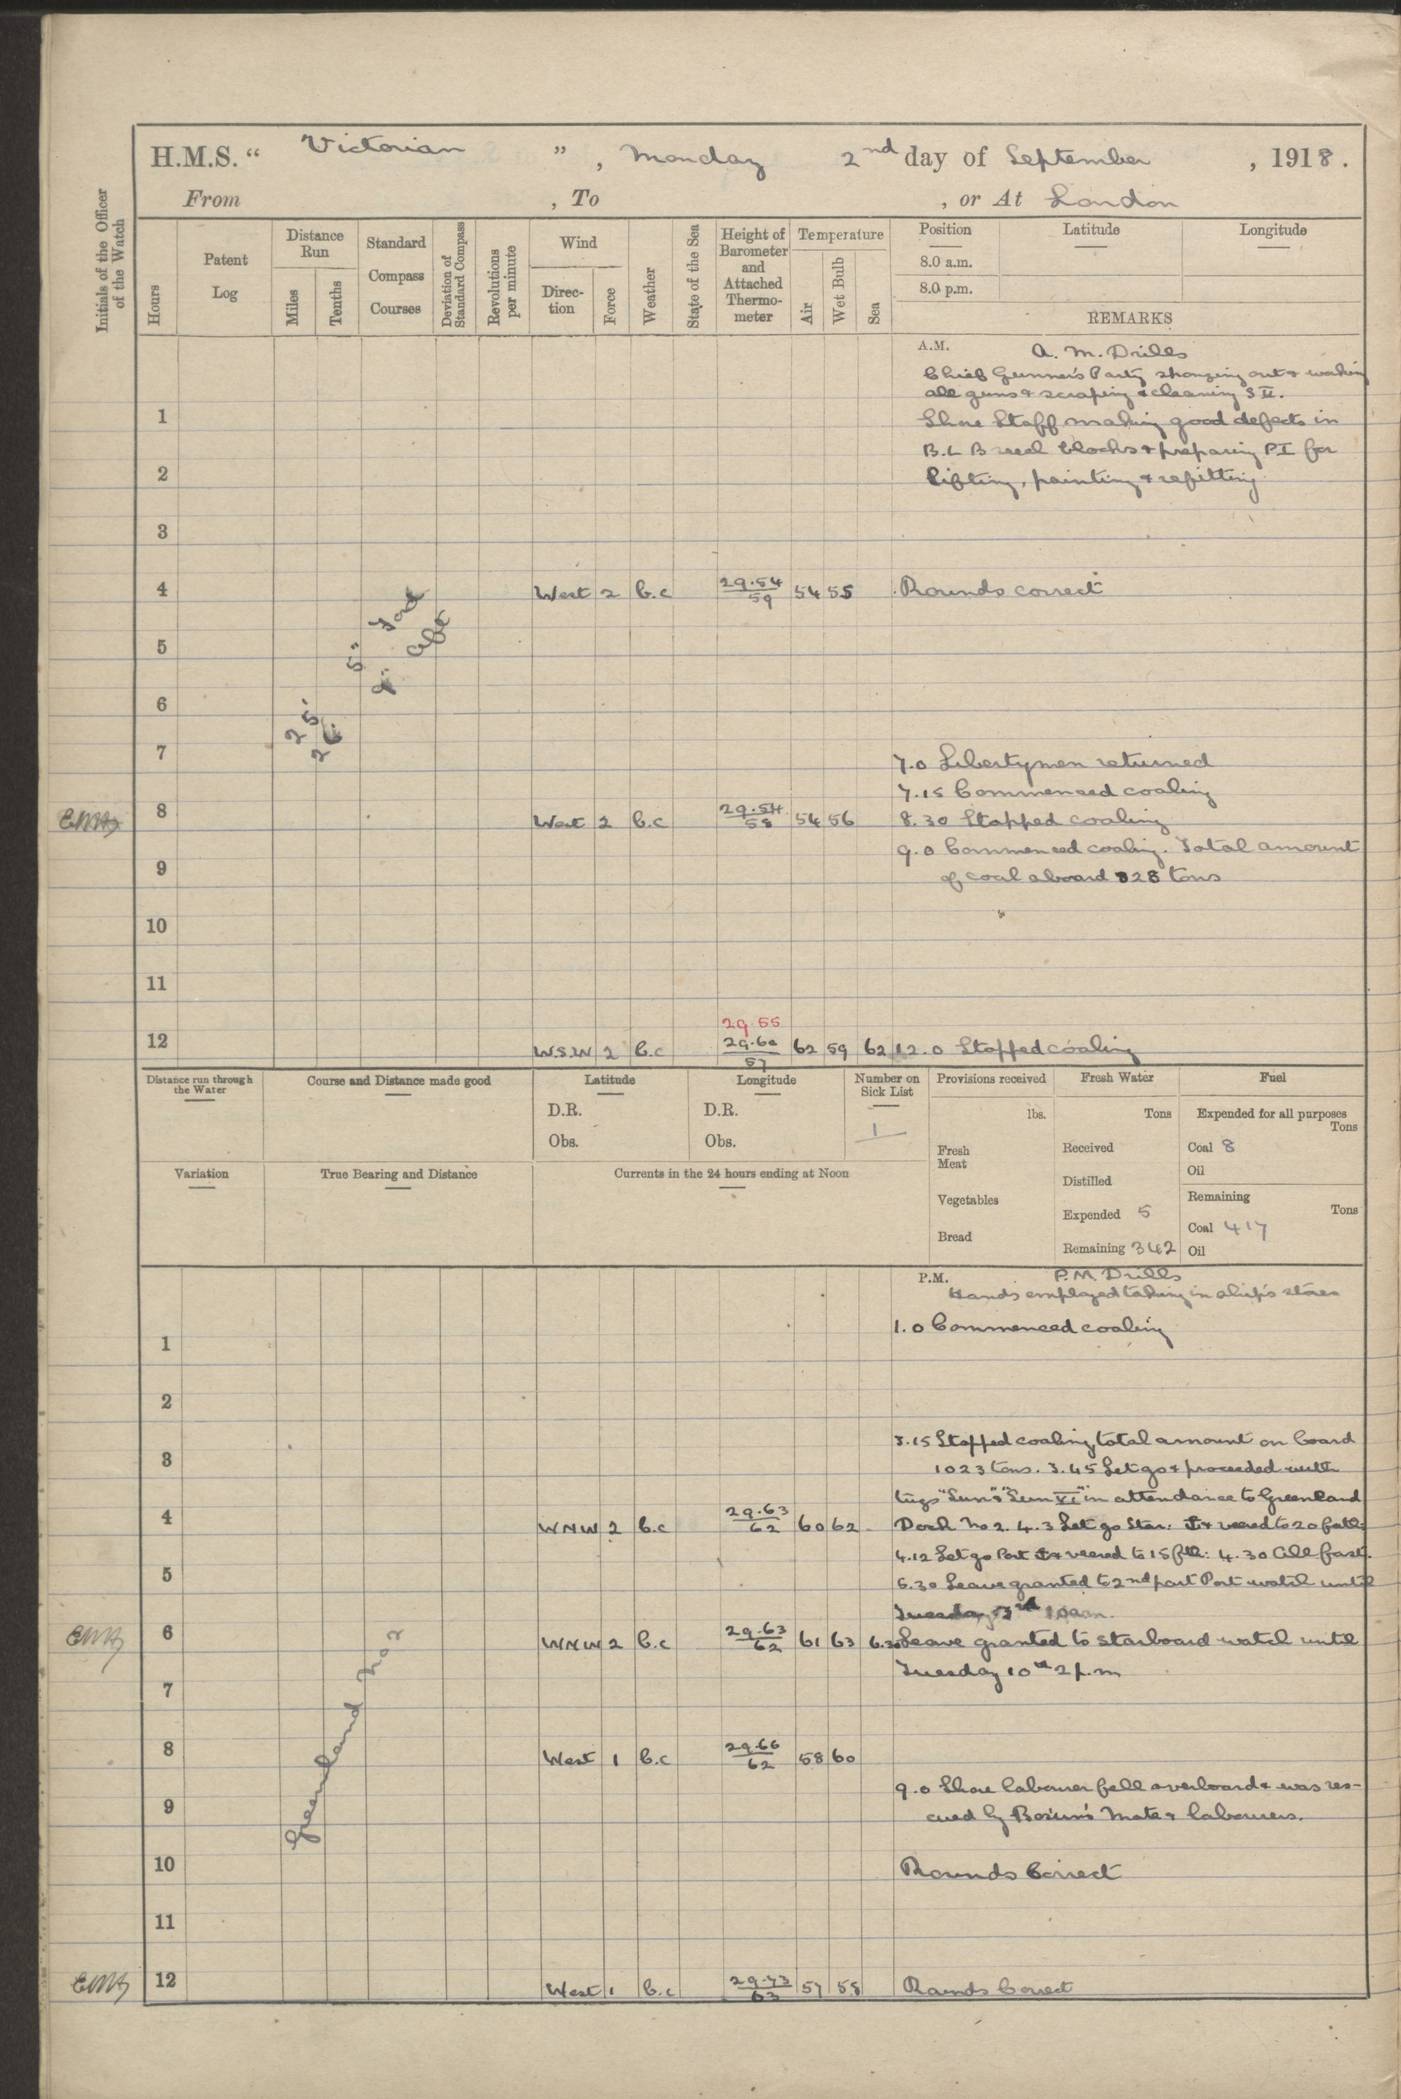 H.M.S. " Victorian ", Monday 2nd day of September, 1918.
From , To , or At London
Initials of the Officer of the Watch
Hours
Patent Log
Distance Run
Miles
Tenths
Standard Compass Courses
Deviation of Standard Compass
Revolutions per minute
Wind
Direction
Force
Weather
State of the Sea
Height of Barometer and Attached Thermometer
Temperature
Air
Wet Bulb
Sea
Position
Latitude
Longitude
8.0 a.m.
8.0 p.m.
REMARKS
A.M. A. M. Drills
Chief Gunner's Party sponging out &
all guns & scraping & cleaning S II.
1 Shore Staff making good defects in
B.L Breech blocks & preparing P I for
2 lifting, painting & refitting
3
4 West 2 b.c 29.54 59 54 55 Rounds correct
5
6
5" 2" Ford Aft
25' 26'
7 7.0 Libertymen returned
7.15 Commenced coaling
8 West 2 b.c 29.54 58 54 56 8.30 Stopped coaling
9.0 Commenced coaling. Total amount
9 of coal aboard 828 tons
10
11
29.55
12 WSW 2 b.c 29.60 57 62 59 62 12.0 Stopped coaling
Distance run through the Water
Course and Distance made good
Latitude
D.R.
Obs.
Longitude
D.R.
Obs.
Number on Sick List
1
Variation
True Bearing and Distance
Currents in the 24 hours ending at Noon
Provisions received
lbs.
Fresh Meat
Vegetables
Bread
Fresh Water
Tons
Received
Distilled
Expended 5
Remaining 342
Fuel
Expended for all purposes
Tons
Coal 8
Oil
Remaining
Tons
Coal 417
Oil
P.M. P.M. Drills
Hands employed taking in ship's stores
1.0 Commenced coaling
1
2
3.15 Stopped coaling total amount on board
3 1023 tons. 3.45 Let go & proceeded with
tugs "Sun" & "Sun VI" in attendance to Greenland
4 WNW 2 b.c 29.63 62 60 62 Dock No 2. 4.3 Let go Star: & veered to 20 fath:
4.12 Let go Port & veered to 15 fth: 4.30 All fast.
5 5.30 Leave granted to 2nd part Port watch until
Tuesday 3rd
6 WNW 2 b.c 29.63 62 61 63 6.30 Leave granted to starboard watch until
Tuesday 10th 2 p.m
7
8 West 1 b.c 29.66 62 58 60
Greenland No 2
9.0 Shore labourer fell overboard & was res-
9 cued by Bosun's Mate & labourers.
10 Rounds Correct
11
12 West 1 b.c 29.73 63 57 58 Rounds Correct